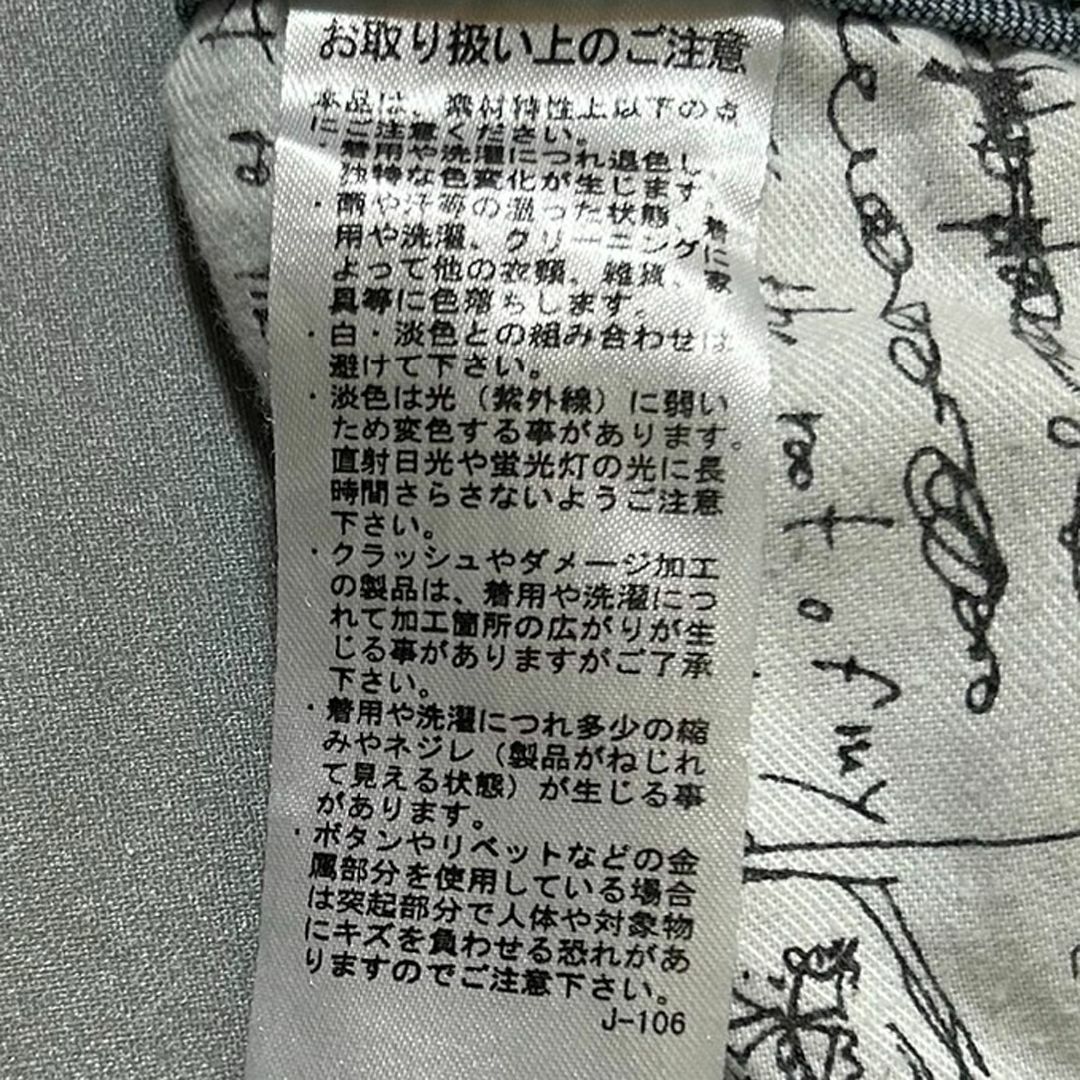 お取り扱い上のご注意
本品は、素材特性上以下の点
にご注意ください。
・着用や洗濯につれ退色し、
独特な色変化が生じます。
・雨や汗等の湿った状態、着
用や洗濯、クリーニングに
よって他の衣類、雑貨、家
具等に色落ちします。
・白・淡色との組み合わせは
避けて下さい。
・淡色は光（紫外線）に弱い
ため変色する事があります。
直射日光や蛍光灯の光に長
時間さらさないようご注意
下さい。
・クラッシュやダメージ加工
の製品は、着用や洗濯につ
れて加工箇所の広がりが生
じる事がありますがご了承
下さい。
・着用や洗濯につれ多少の縮
みやネジレ（製品がねじれ
て見える状態）が生じる事
があります。
・ボタンやリベットなどの金
属部分を使用している場合
は突起部分で人体や対象物
にキズを負わせる恐れがあ
りますのでご注意下さい。
J-106
my